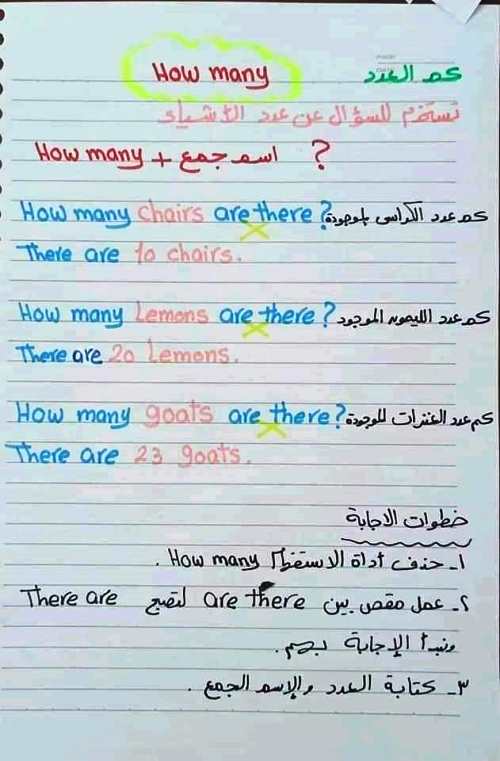 How many كم العدد
تستخدم للسؤال عن عدد الأشياء
How many + اسم جمع ?
How many chairs are there? كم عدد الكراسي الموجودة
There are 10 chairs.
How many Lemons are there? كم عدد الليمون الموجود
There are 20 Lemons.
How many goats are there? كم عدد العنزات الموجودة
There are 23 goats.
خطوات الاجابة
١- حذف أداة الاستفهام How many .
٢- عمل مقص بين are there لتصبح There are
ونبدأ الإجابة بهم.
٣- كتابة العدد والإسم الجمع .